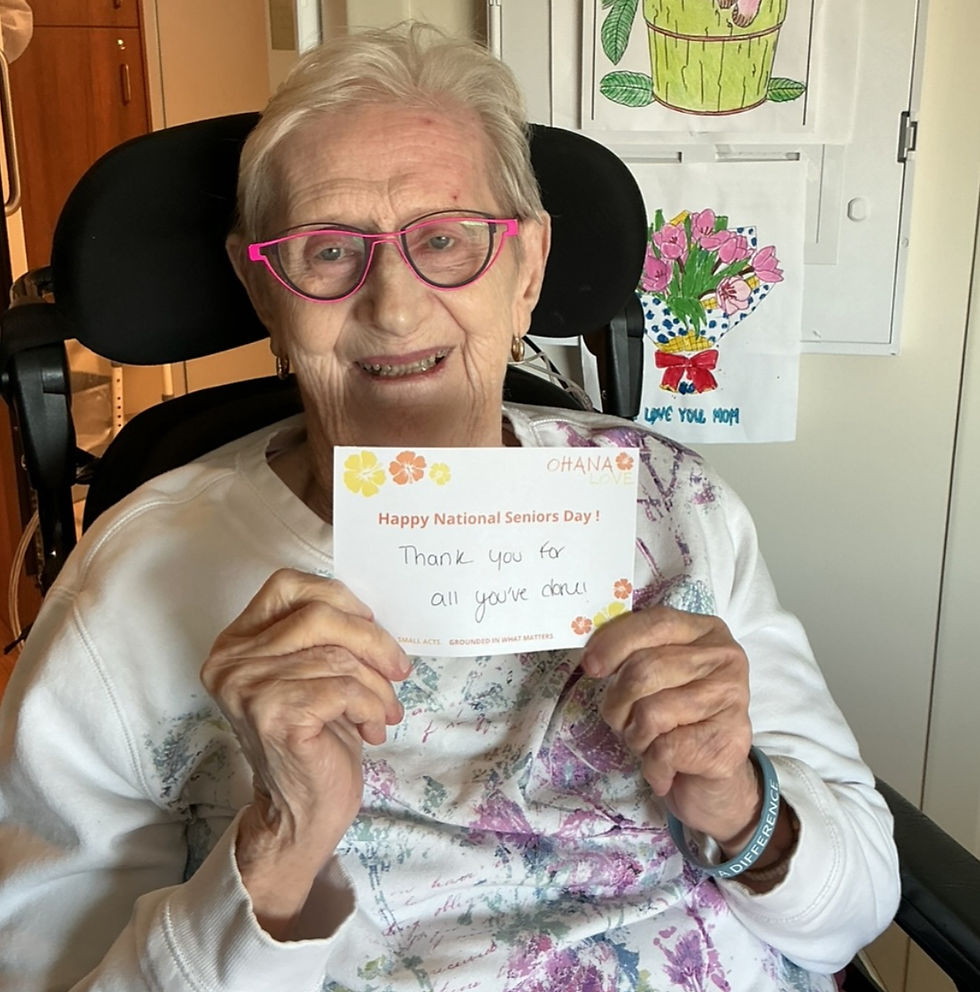 LOVE YOU MOM
OHANA
LOVE
Happy National Seniors Day !
Thank you for
all you've done!
SMALL ACTS. GROUNDED IN WHAT MATTERS.
A DIFFERENCE